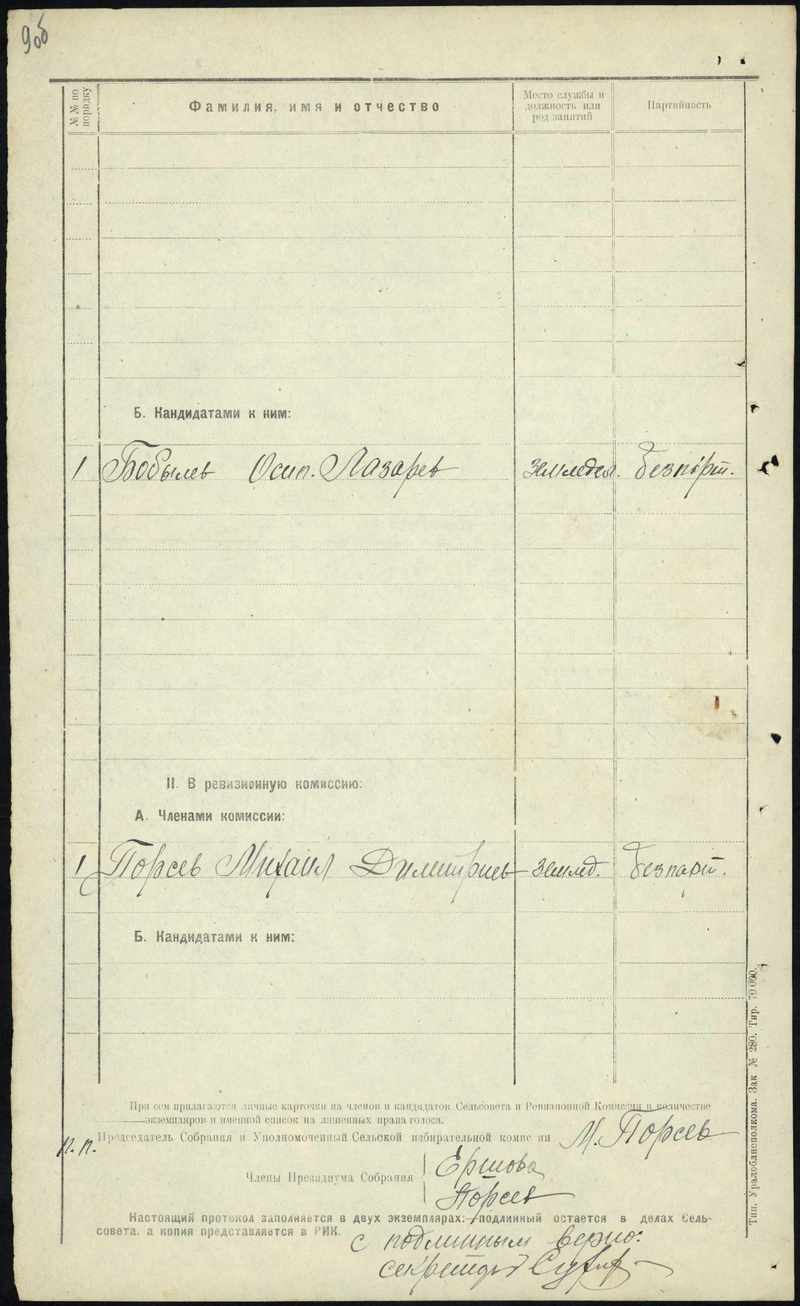 90б
№ № по порядку
Фамилия, имя и отчество
Место службы и должность или род занятий
Партийность
Б. Кандидатами к ним:
1 Бобылев Осип. Лазарев земледел. безпарт.
II. В ревизионную комиссию:
А. Членами комиссии:
1 Порсев Михаил Димитриев землед. безпарт.
Б. Кандидатами к ним:
При сем прилагаются личные карточки на членов и кандидатов Сельсовета и Ревизионной Комиссии в количестве
экземпляров и именной список на лишенных права голоса.
п.п. Председатель Собрания и Уполномоченный Сельской избирательной комиссии М. Порсев
Члены Президиума Собрания Ершова
Порсев
Настоящий протокол заполняется в двух экземплярах: подлинный остается в делах Сель-
совета, а копия представляется в РИК.
с подлинным верно:
секретарь
Тип. Уралоблисполкома. Зак № 280. Тир. 70.000.